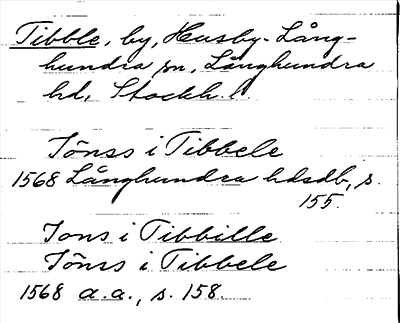 Tibble, by, Husby-Lång-
hundra sn, Långhundra
hd, Stockh. l.
Jönss i Tibbele
1568 Långhundra hdsdb, s.
155.
Jons i Tibbille
Jönss i Tibbele
1568 a.a., s. 158.